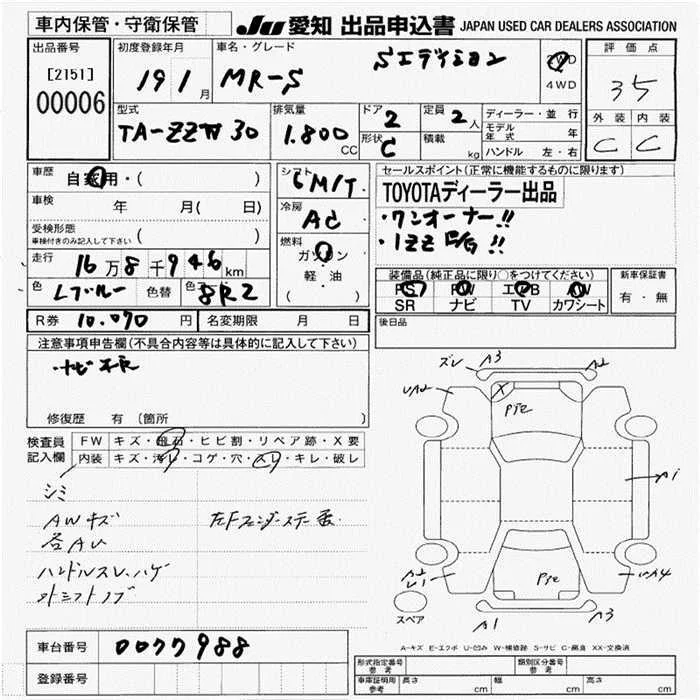 車内保管・守衛保管
JU 愛知 出品申込書 JAPAN USED CAR DEALERS ASSOCIATION
出品番号
[2151]
00006
初度登録年月
19 1 月
車名・グレード
MR-S Sエディション
2WD
4WD
評価点
35
外装 内装
C C
型式
TA-ZZW30
排気量
1.800 CC
ドア
2
形状
C
定員
2 人
積載
kg
ディーラー・並行
モデル年式 年
ハンドル 左・右
車歴
自家用・( )
車検
年 月( 日)
受検形態
車検付きのみ記入して下さい ( )
走行
16万8千946km
色
Lブルー
色替
色
8R2
シフト
6M/T
冷房
AC
燃料
ガソリン
軽・油
( )
セールスポイント(正常に機能するものに限ります)
TOYOTAディーラー出品
・ワンオーナー!!
・1ZZ E/G !!
装備品(純正品に限り○をつけてください)
PS PW エアB AW
SR ナビ TV カワシート
新車保証書
有・無
R券 10.070 円
名変期限 月 日
後日品
注意事項申告欄(不具合内容等は具体的に記入して下さい)
修復歴 有 〔箇所 〕
検査員記入欄
FW キズ・飛石・ヒビ割・リペア跡・X要
内装 キズ・汚レ・コゲ・穴・スレ・キレ・破レ
シミ
AWキズ
各AU
ハンドルスレ、ハゲ
シフトノブ
ズレ A3
X
P/E
A1
P/E
A1 A3
スペア
A-キズ E-エクボ U-凹み W-補修跡 S-サビ C-腐食 XX-交換済
車台番号 0077988
登録番号
形式指定番号 参考
類別区分番号 参考
車庫証明用 参考
長さ cm
幅 cm
高さ cm